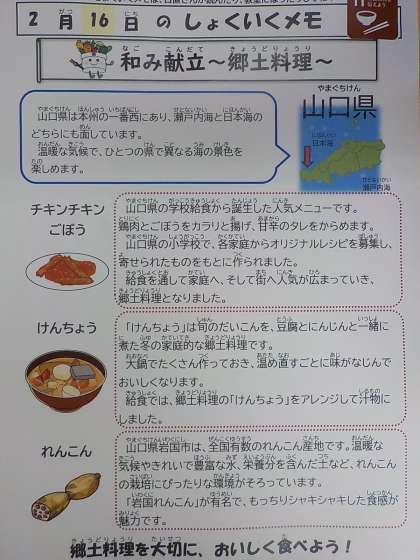 2月16日のしょくいくメモ
和み献立～郷土料理～
山口県は本州の一番西にあり、瀬戸内海と日本海の
どちらにも面しています。
温暖な気候で、ひとつの県で異なる海の景色を
楽しめます。
山口県
日本海
瀬戸内海
チキンチキン
ごぼう
山口県の学校給食から誕生した人気メニューです。
鶏肉とごぼうをカラリと揚げ、甘辛のタレをからめます。
山口県の小学校で、各家庭からオリジナルレシピを募集し、
寄せられたものをもとに作られました。
給食を通して家庭へ、そして街へ人気が広まっていき、
郷土料理となりました。
けんちょう
「けんちょう」は旬のだいこんを、豆腐とにんじんと一緒に
煮た冬の家庭的な郷土料理です。
大鍋でたくさん作っておき、温め直すごとに味がなじんで
おいしくなります。
給食では、郷土料理の「けんちょう」をアレンジして汁物に
しました。
れんこん
山口県岩国市は、全国有数のれんこん産地です。温暖な
気候やきれいで豊富な水、栄養分を含んだ土など、れんこん
の栽培にぴったりな環境がそろっています。
「岩国れんこん」が有名で、もっちりシャキシャキした食感が
魅力です。
郷土料理を大切に、おいしく食べよう!